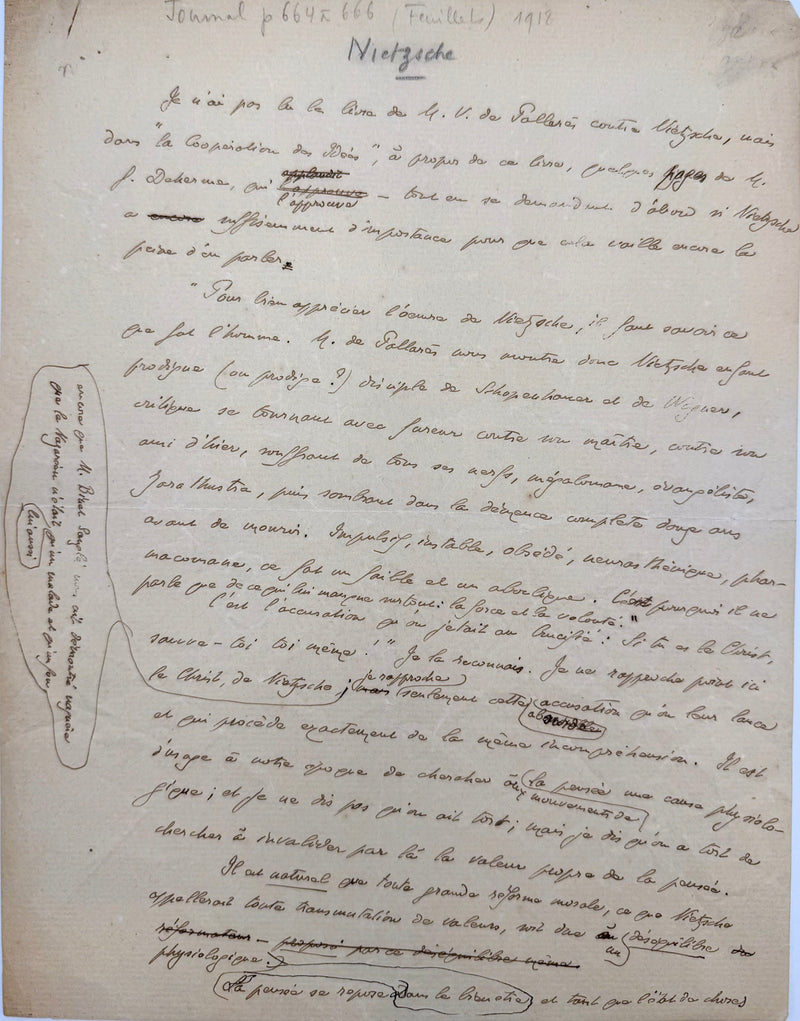 Journal p 664 à 666 (Feuillets) 1918
Nietzsche
Je n'ai pas lu le livre de M. V. de Pallarès contre Nietzsche, mais
dans "la Coopération des Idées", à propos de ce livre, quelques pages de M.
applaudit
G. Deherme, qui l'approuve — tout en se demandant d'abord si Nietzsche
l'approuve
a encore suffisamment d'importance pour que cela vaille encore la
peine d'en parler.
"Pour bien apprécier l'œuvre de Nietzsche, il faut savoir ce
que fut l'homme. M. de Pallarès nous montre donc Nietzsche enfant
prodigue (ou prodige?) disciple de Schopenhauer et de Wagner,
critique se tournant avec fureur contre son maître, contre son
ami d'hier, souffrant de tous ses nerfs, mégalomane, évangéliste,
Zarathustra, puis sombrant dans la démence complète douze ans
avant de mourir. Impulsif, instable, obsédé, neurasthénique, phar-
macomane, ce fut un faible et un aboulique. C'est pourquoi il ne
parle que de ce qui lui manque surtout: la force et la volonté."
C'est l'accusation qu'on jetait au Crucifié: Si tu es le Christ,
sauve-toi toi même!" Je la reconnais. Je ne rapproche point ici
je rapproche
le Christ, de Nietzsche; mais seulement cette accusation qu'on leur lance
absurde
et qui procède exactement de la même incompréhension. Il est
d'usage à notre époque de chercher aux la pensée une cause physiolo-
mouvements de
gique; et je ne dis pas qu'on ait tort; mais je dis qu'on a tort de
chercher à invalider par là la valeur propre de la pensée.
Il est naturel que toute grande réforme morale, ce que Nietzsche
appellerait toute transmutation de valeurs, soit due à un déséquilibre
réformateur – proposé par ce déséquilibre même
physiologique.
La pensée se repose dans le bien être et tant que l'état de choses
encore que M. Binet Sanglé nous ait démontré naguère
que le Nazaréen n'était qu'un malade et qu'un fou,
lui aussi